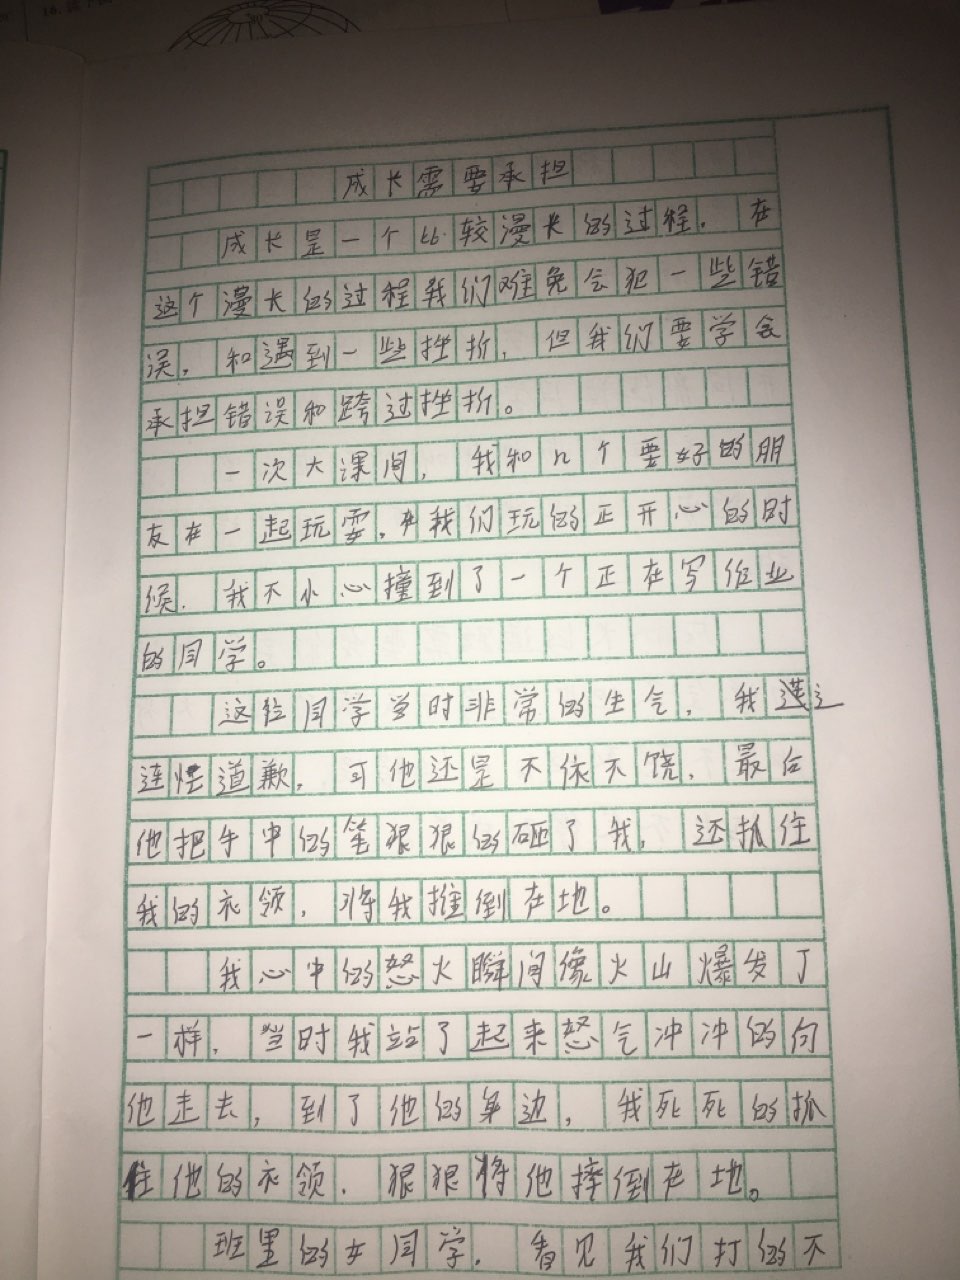 成长需要承担
成长是一个比较漫长的过程，在
这个漫长的过程我们难免会犯一些错
误，和遇到一些挫折，但我们要学会
承担错误和跨过挫折。
一次大课间，我和几个要好的朋
友在一起玩耍，在我们玩的正开心的时
候，我不小心撞到了一个正在写作业
的同学。
这位同学当时非常的生气，我
连忙道歉，可他还是不依不饶，最后
他把手中的笔狠狠的砸了我，还抓住
我的衣领，将我推倒在地。
我心中的怒火瞬间像火山爆发了
一样，当时我站了起来怒气冲冲的向
他走去，到了他的身边，我死死的抓
住他的衣领，狠狠将他摔倒在地。
班里的女同学，看见我们打的不